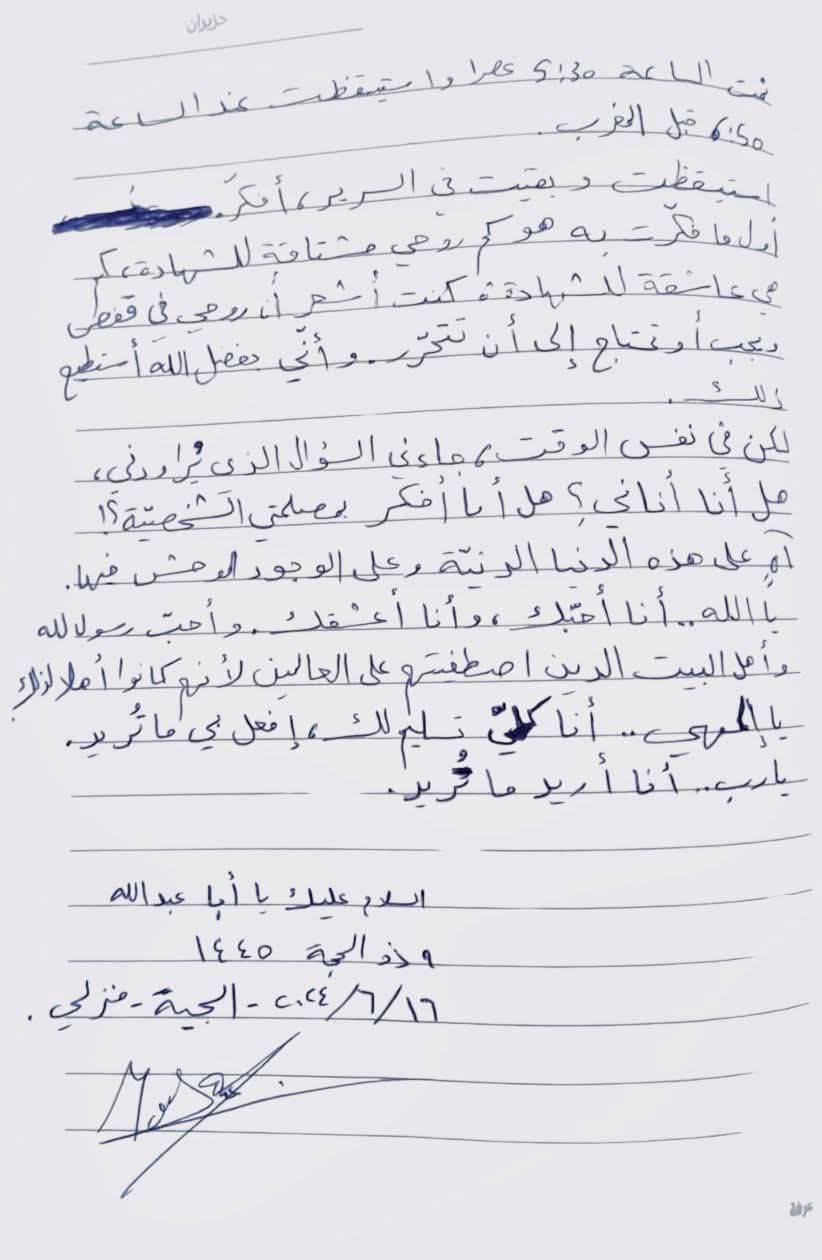 حزيران
نمت الساعة 5:30 عصرا واستيقظت عند الساعة
6:50 قبل المغرب.
استيقظت وبقيت في السرير، أفكّر.
أول ما فكّرت به هو كم روحي مشتاقة للشهادة، كم
هي عاشقة للشهادة، كنت أشعر أن روحي في قفص
ويجب أو تحتاج إلى أن تتحرّر. وأنّي بفضل الله أستطيع
ذلك.
لكن في نفس الوقت، جاءني السؤال الذي يُراودني،
هل أنا أناني؟ هل أنا أفكر بمصلحتي الشخصيّة؟!
آهٍ على هذه الدنيا الدنيّة وعلى الوجود الموحش فيها.
يا الله.. أنا أحبّك، وأنا أعشقك. وأحبّ رسول الله
وأهل البيت الذين اصطفيتهم على العالمين لأنهم كانوا أهلا لذلك
يا إلهي.. أنا كلّي تسليم لك، إفعل بي ما تُريد.
يا رب.. أنا أريد ما تُريد.
السلام عليك يا أبا عبد الله
٩ ذو الحجة ١٤٤٥
١٦/٦/٢٠٢٤ - الجية - منزلي.